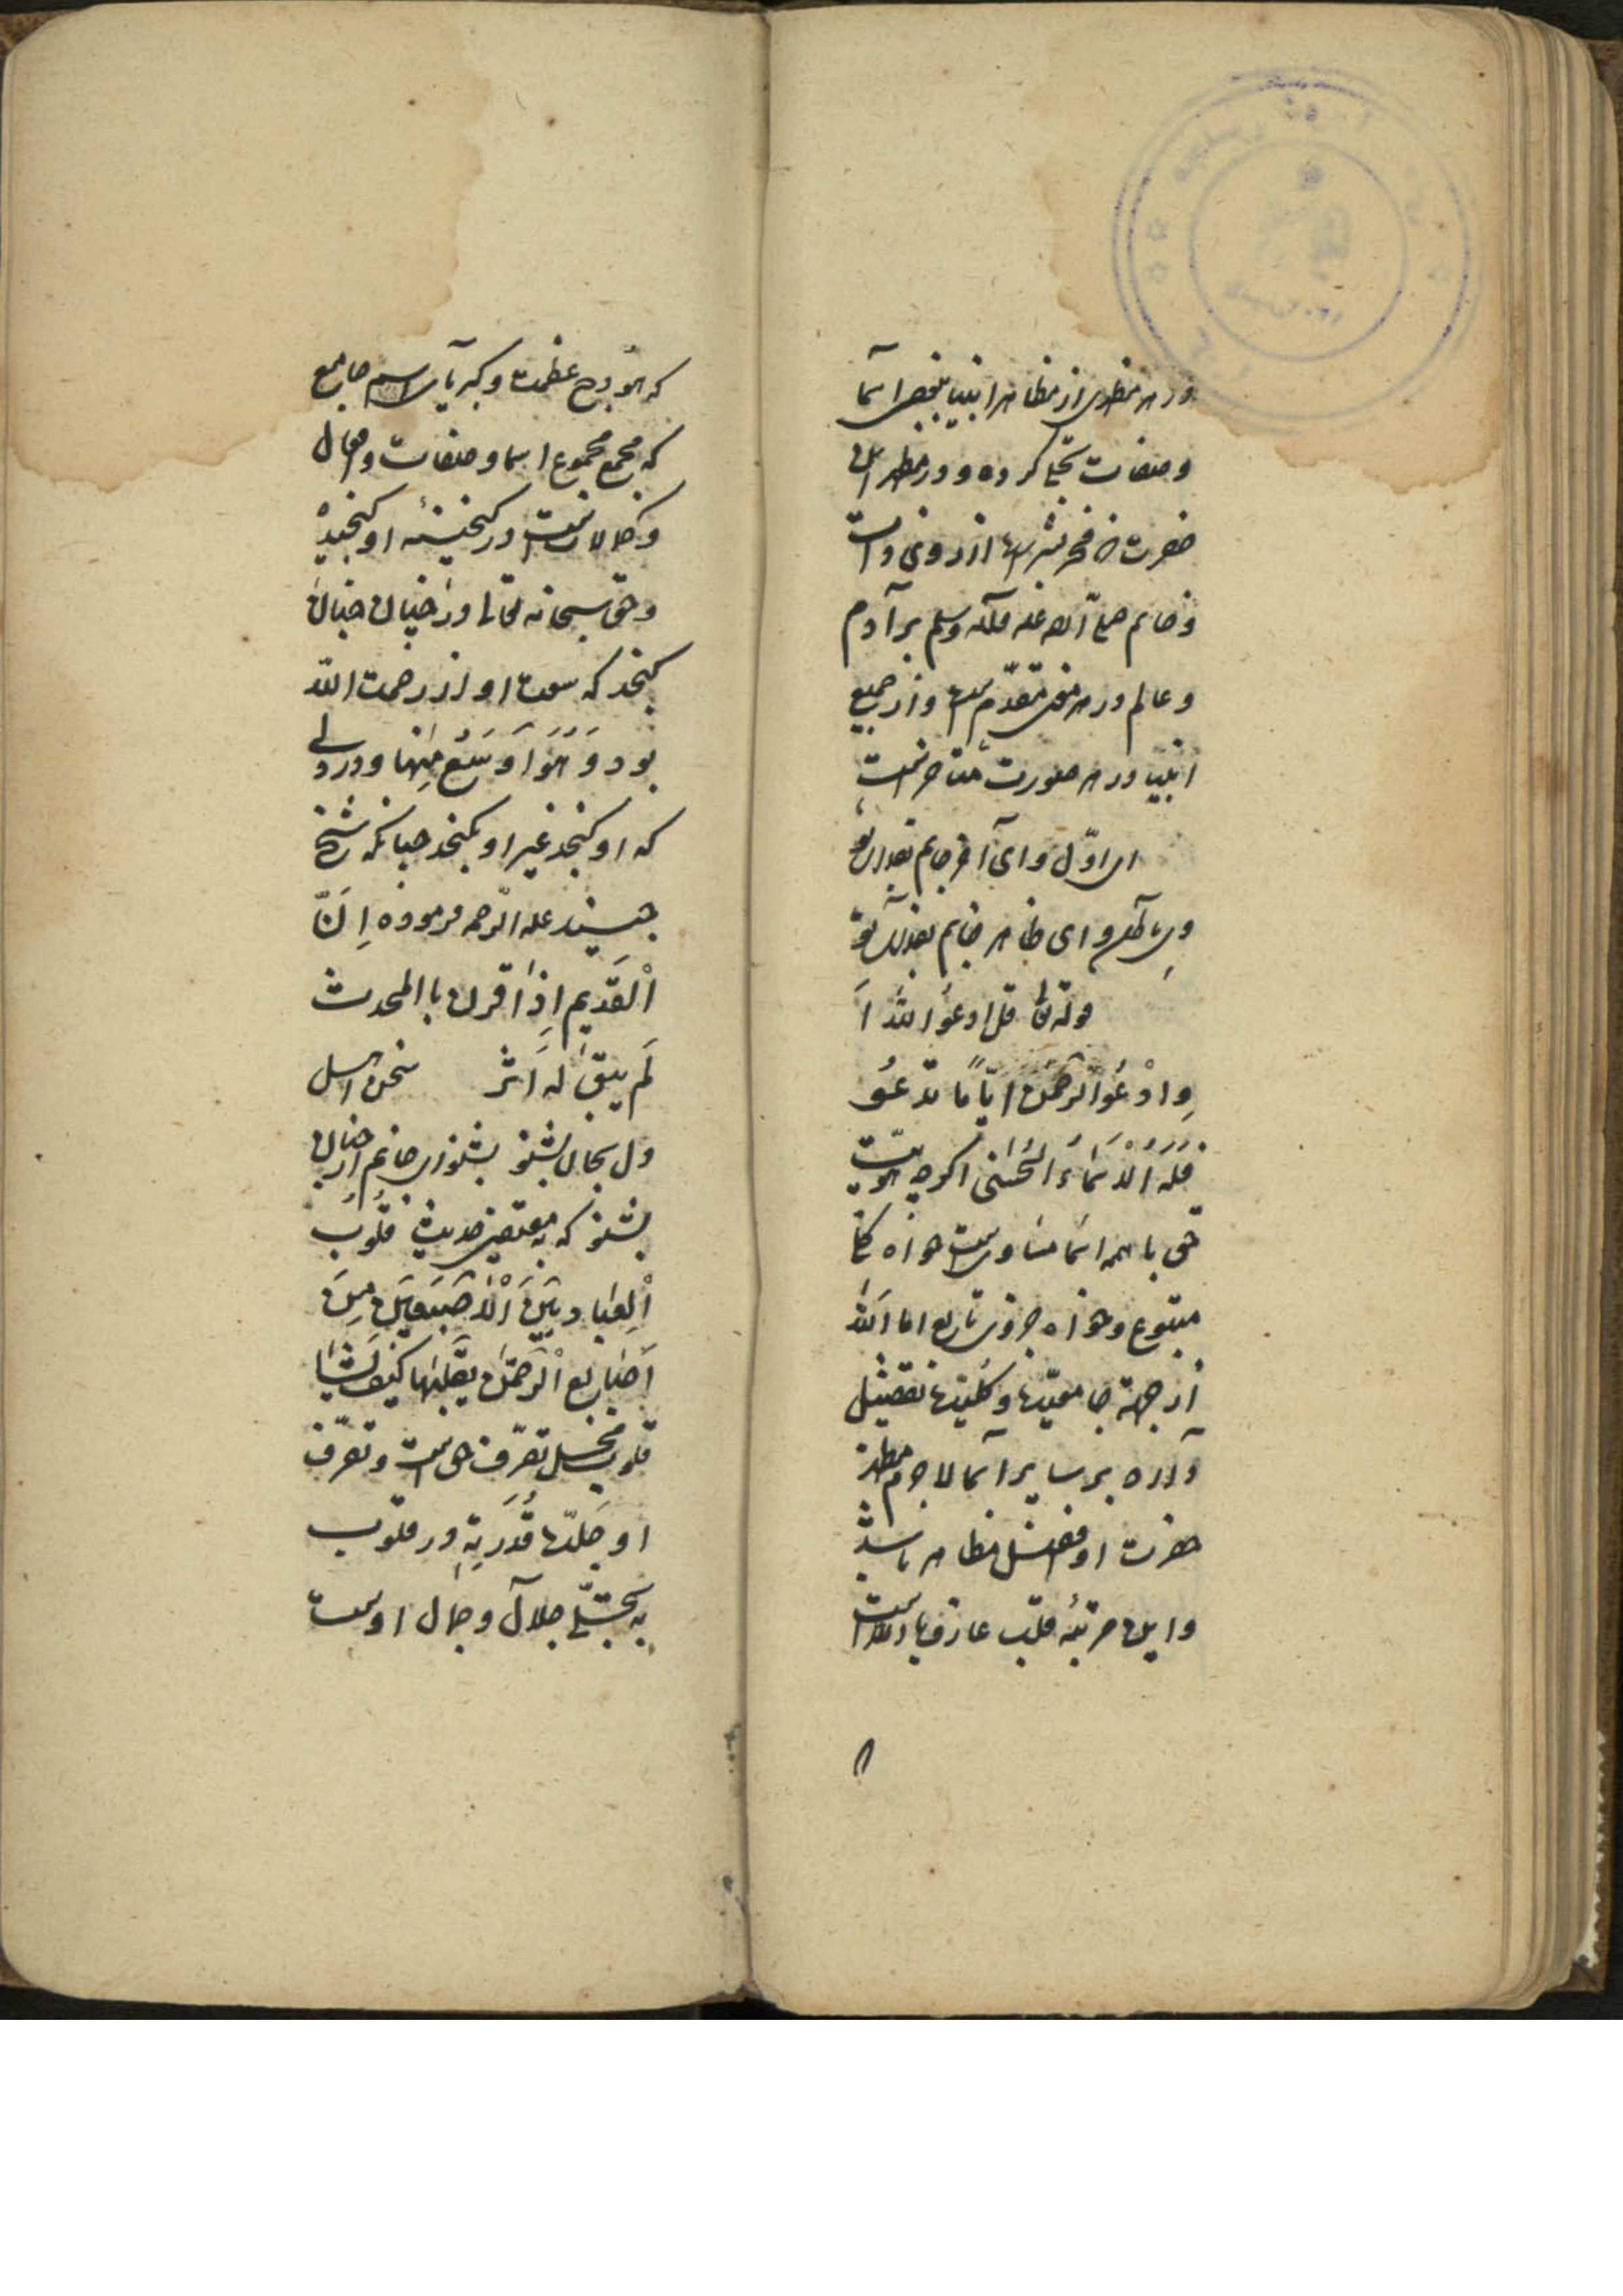 در هر مظهری از مظاهر انبیا ببعض اسما
وصفات تجلی کرده و در مظهر این
حضرت که فخر بشر است از روی ذات
وخاتم صلی الله علیه وآله وسلم بر آدم
وعالم در هر معنی مقدّم است واز جمیع
انبیا در هر صورت خاتم است
ای اوّل وای آخر جانم بفدای تو
وی باطن و ای ظاهر جانم بفدای تو
قوله تعالی قل ادعُوا اللهَ اَ
وِادْعُوا الرَّحمٰن ایّاً ما تدعُو
فَلَهُ الْاَسْمَاءُ الْحُسْنٰی اکرچه هویت
حق با همه اسما مساویست خواه کلی
متبوع وخواه جزوی تابع اما الله
از جهة جامعیّت وکلیّت تفضیل
دارد بر سایر اسما لاجرم مظهر
حضرت او افضل مظاهر باشد
واین مرتبهٔ قلب عارف بالله است
که هودج عظمت وکبریای اسم جامع
که مجمع مجموع اسما وصفات وافعال
وکمالاتست در کنجینهٔ او کنجیده
وحق سبحانه تعالی در خیال جنان
کنجد که سعت او از رحمت الله
بود وَهُوَ اَوسَعُ مِنها ودر دلی
که او کنجد غیر او نکنجد چنانکه شیخ
جنید علیه الرحمه فرموده اِنَّ
اَلْقَدیم اِذا قرن باالمحدث
لَم یبقَ لَه اَثر سخن اهل
دل بجان بشنو بشنو ای جانم از جنان
بشنو که بمقتضی حدیث قُلُوبُ
اَلْعِباد بَینَ اَلْاَصبَعَینِ مِنَ
اَصابع الرَّحمٰن یقلبها کَیفَ یَشٰا
قلوب محل تصرّف حق است وتصرّف
او جلّت قُدرَتِهِ در قلوب
به تجلّی جلال وجمال اوست